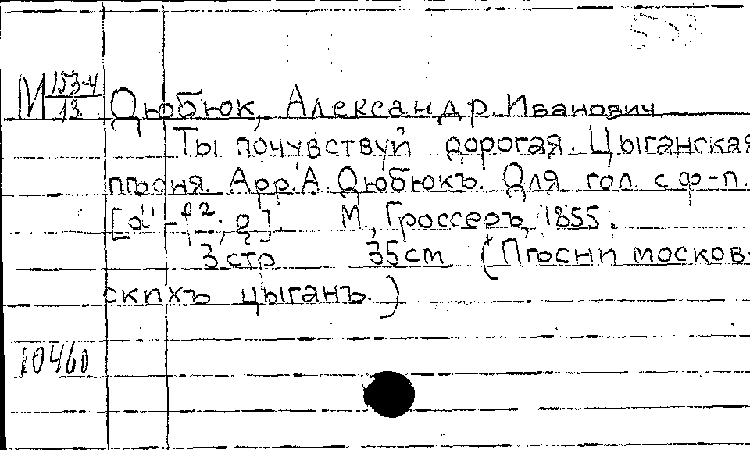 553
М 153-4/13
Дюбюк, Александр Иванович
Ты почувствуй дорогая. Цыганская
пѣсня. Арр. А. Дюбюкъ. Для гол. с ф-п.
[a¹ - f²; g]. М., Гроссеръ, 1855.
3 стр 35 cm (Пѣсни москов-
скихъ цыганъ.)
10460